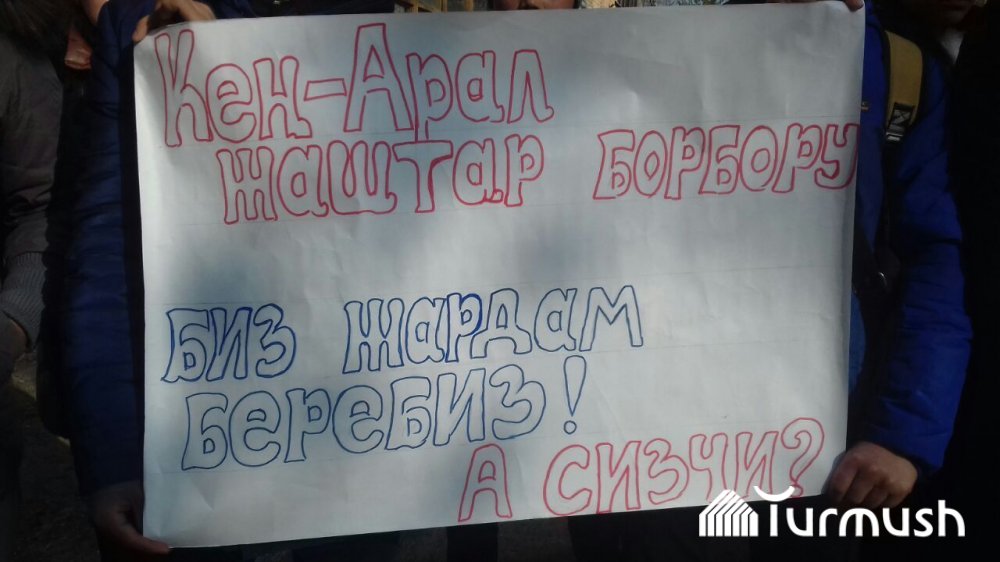 Кен-Арал
жаштар борбору
Биз жардам
беребиз!
А сизчи?
Turmush